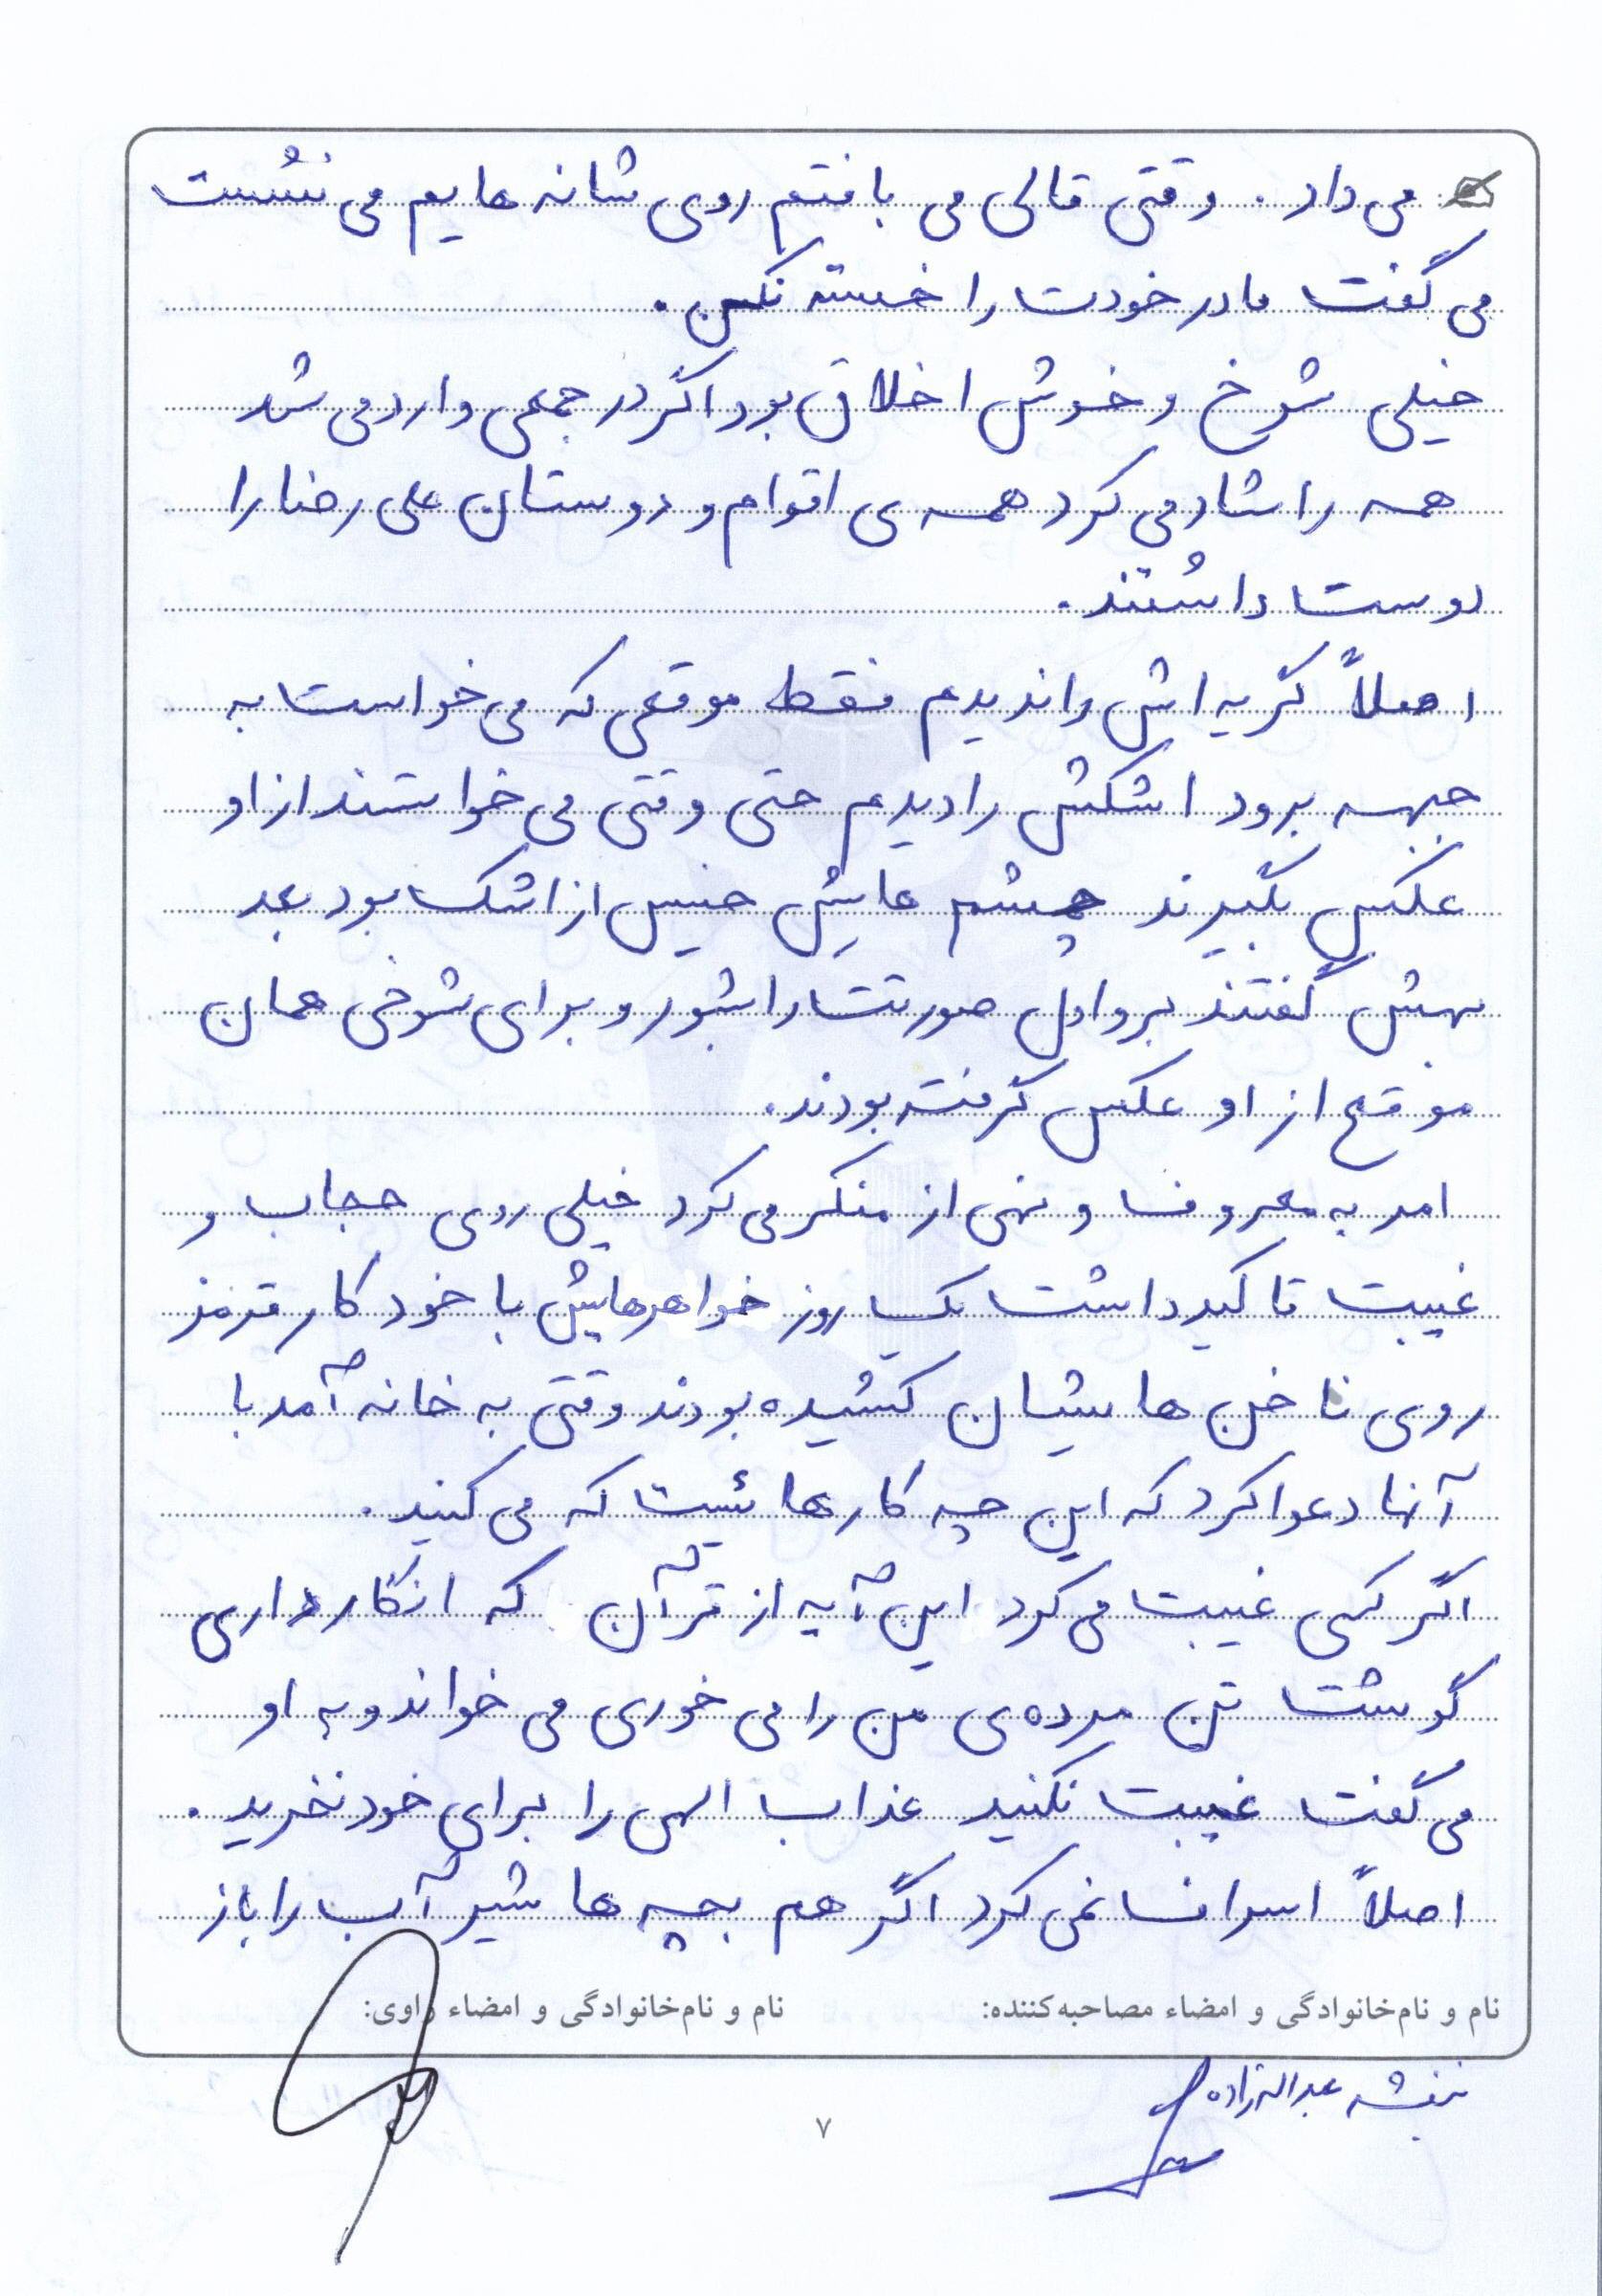 می داد. وقتی قالی می بافتم روی شانه هایم می نشست
می گفت مادر خودت را خسته نکن.
خیلی شوخ و خوش اخلاق بود اگر در جمعی وارد می شد
همه را شاد می کرد همه ی اقوام و دوستان علی رضا را
دوست داشتند.
اصلاً گریه اش را ندیدم فقط موقعی که می خواست به
جبهه برود اشکش را دیدم حتی وقتی می خواستند از او
عکس بگیرند چشم هایش خیس از اشک بود بعد
بهش گفتند برو اول صورتت را بشور و برای شوخی همان
موقع از او عکس گرفته بودند.
امر به معروف و نهی از منکر می کرد خیلی روی حجاب و
غیبت تاکید داشت یک روز خواهرهایش با خودکار قرمز
روی ناخن هایشان کشیده بودند وقتی به خانه آمد با
آنها دعوا کرد که این چه کارهائیست که می کنید.
اگر کسی غیبت می کرد این آیه از قرآن که انگار داری
گوشت تن مرده ی من را می خوری می خواند و به او
می گفت غیبت نکنید عذاب الهی را برای خود نخرید.
اصلاً اسراف نمی کرد اگر هم بچه ها شیر آب را باز
نام و نام‌خانوادگی و امضاء مصاحبه‌کننده: نام و نام‌خانوادگی و امضاء راوی:
بنفشه عبداله زاده
۷